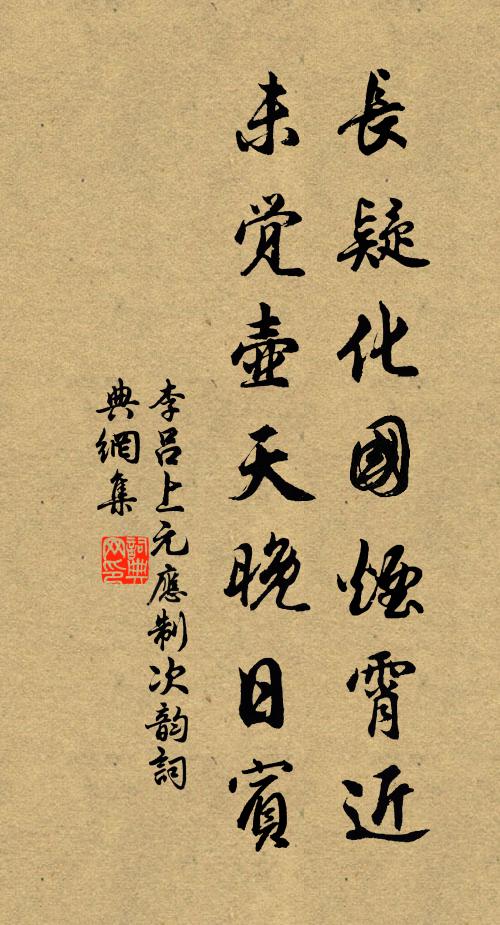 長疑化國煙霄近
未覺壺天晚日賓
李呂上元應制次韵詞
典網集
詞典网印